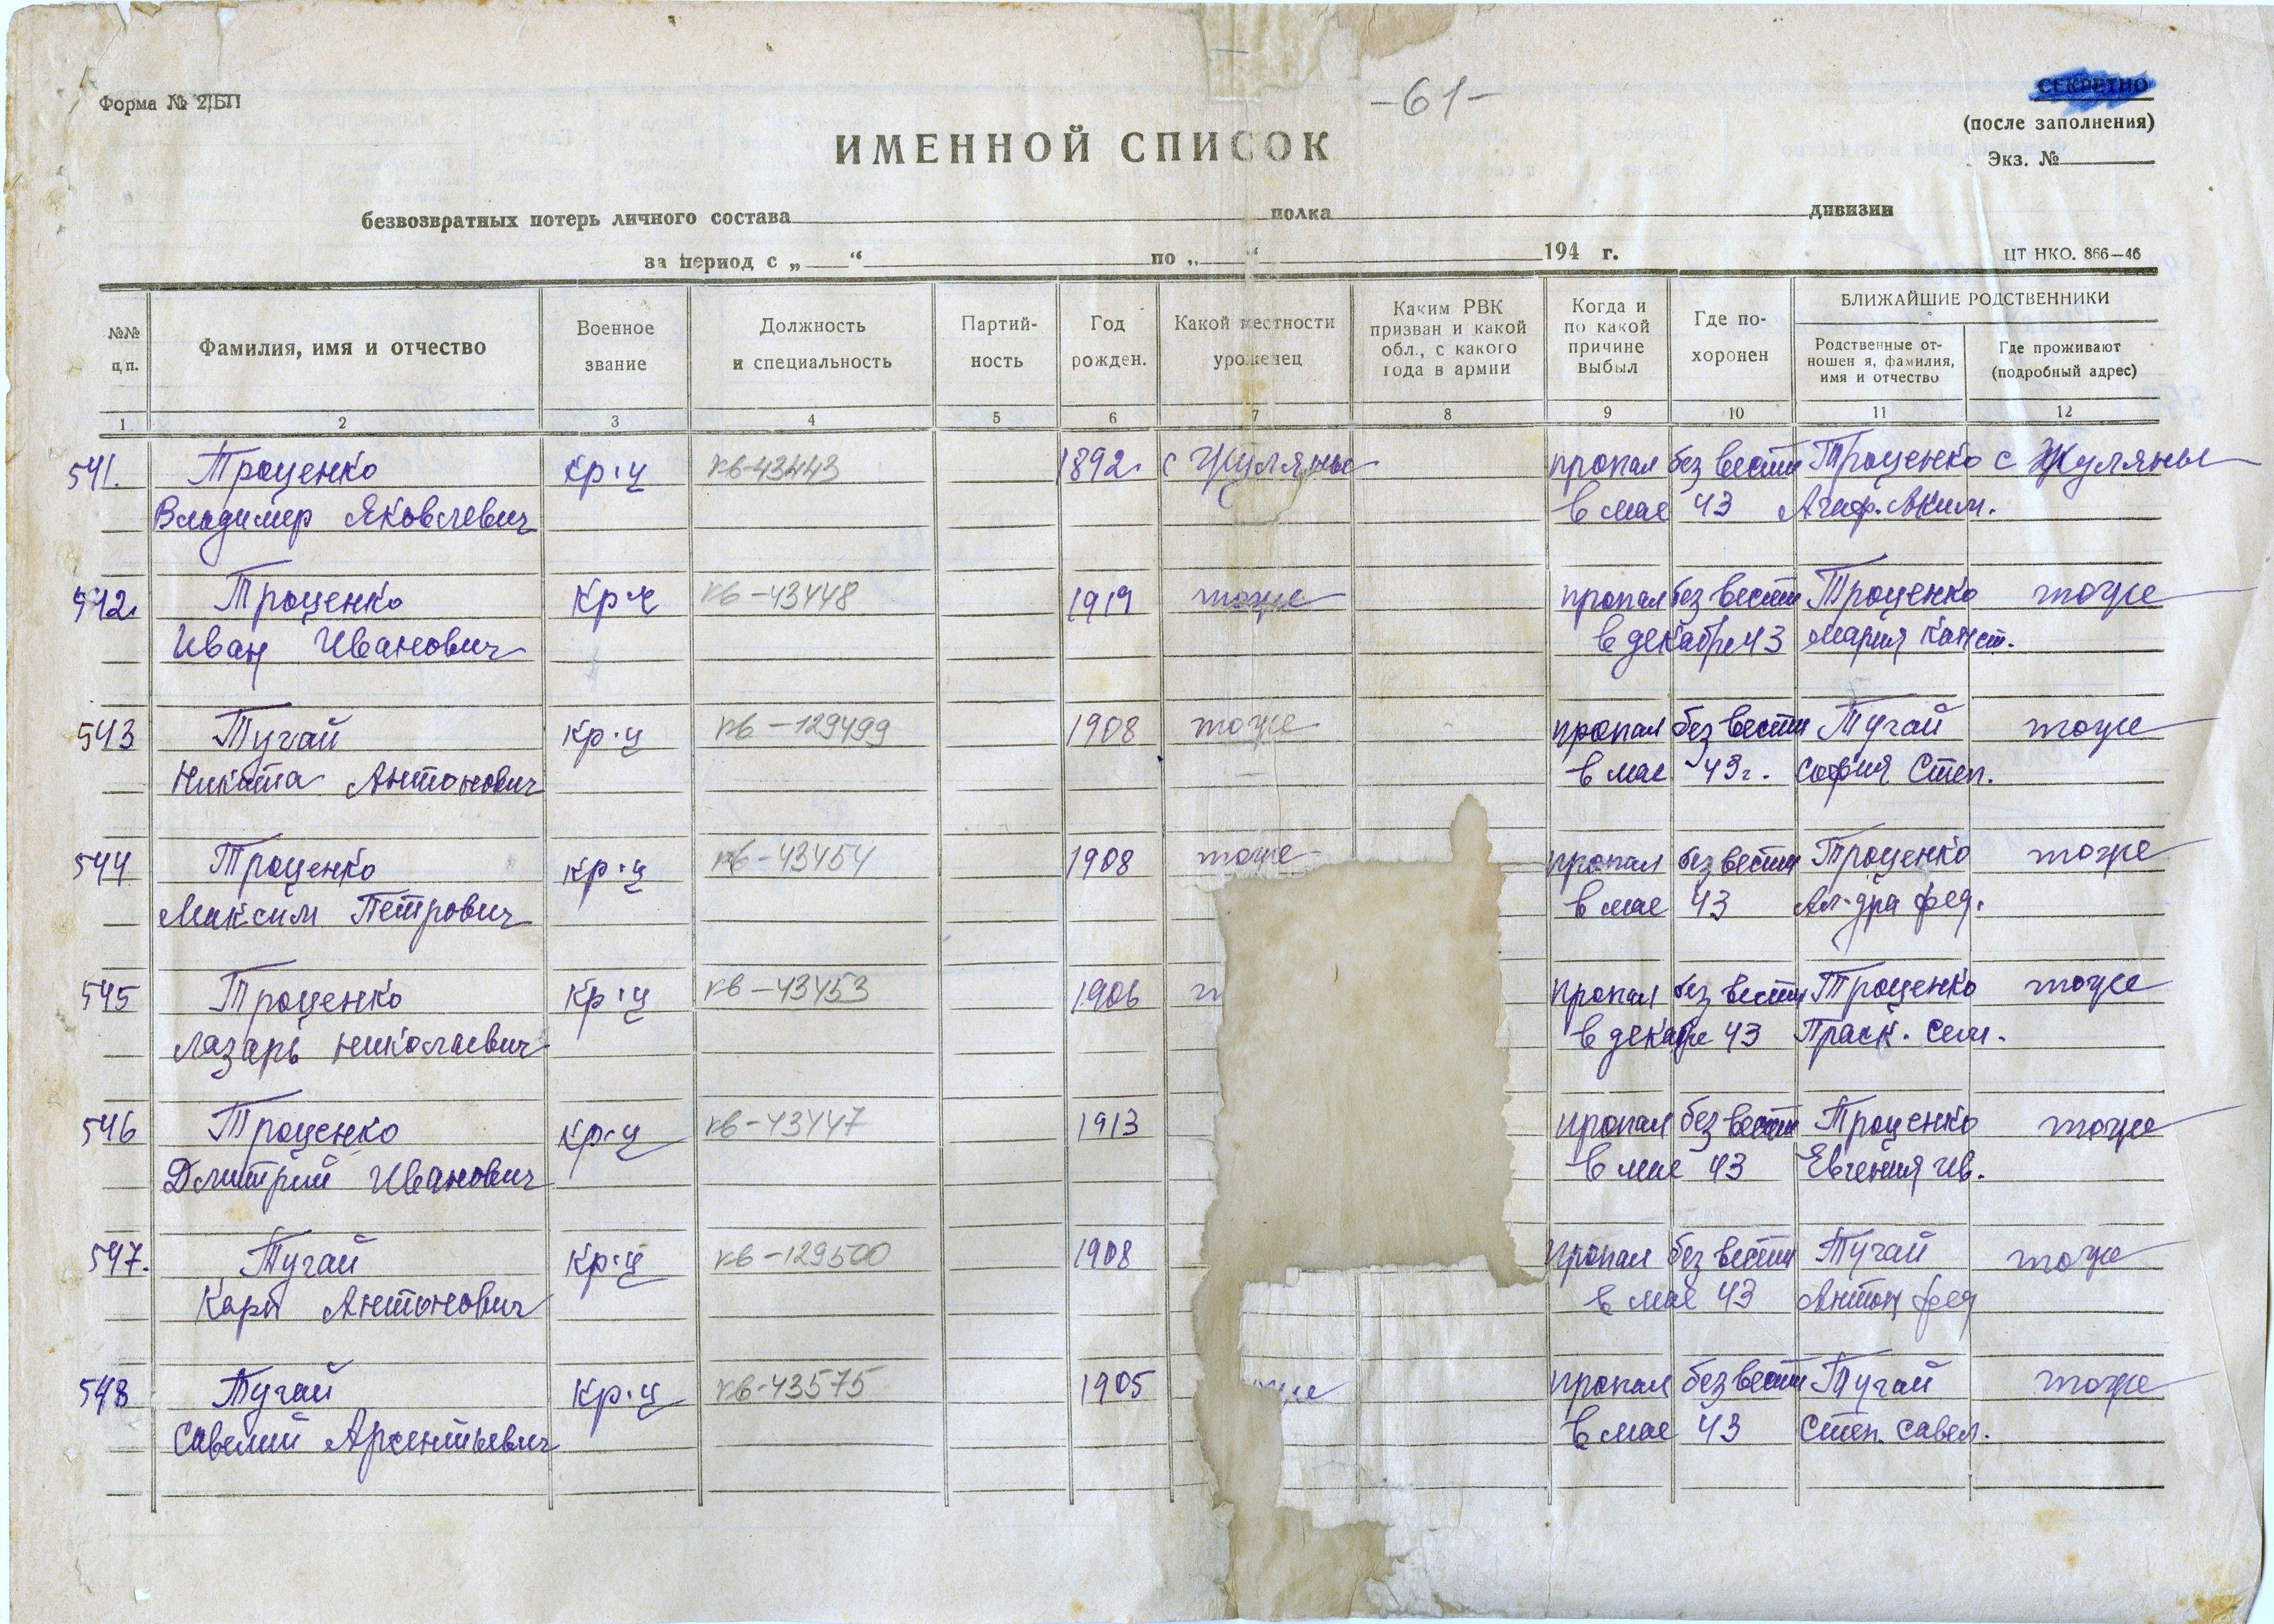 Форма № 2/БП
-61-
СЕКРЕТНО
(после заполнения)
Экз. №
ИМЕННОЙ СПИСОК
безвозвратных потерь личного состава полка дивизии
за период с „ “ по „ “ 194 г.
ЦТ НКО. 866—46
№№ п.п.
Фамилия, имя и отчество
Военное звание
Должность и специальность
Партий-ность
Год рожден.
Какой местности уроженец
Каким РВК призван и какой обл., с какого года в армии
Когда и по какой причине выбыл
Где по-хоронен
БЛИЖАЙШИЕ РОДСТВЕННИКИ
Родственные от-ношен я, фамилия, имя и отчество
Где проживают (подробный адрес)
1 2 3 4 5 6 7 8 9 10 11 12
541. Троценко кр-ц кв-43443 1892 с Жуляны пропал без вести Троценко с Жуляны
Владимир Яковлевич в мае 43 Агаф. Аким.
542. Троценко кр-ц кв-43448 1919 тоже пропал без вести Троценко тоже
Иван Иванович в декабре 43 Мария Конст.
543 Тугай кр-ц кв-129499 1908 тоже пропал без вести Тугай тоже
Никита Антонович в мае 43г. София Степ.
544 Троценко кр-ц кв-43454 1908 тоже пропал без вести Троценко тоже
Максим Петрович в мае 43 Ал-дра Фед.
545 Троценко кр-ц кв-43453 1906 пропал без вести Троценко тоже
Лазарь Николаевич в декабре 43 Праск. Сем.
546 Троценко кр-ц кв-43447 1913 пропал без вести Троценко тоже
Дмитрий Иванович в мае 43 Евгения Ив.
547. Тугай кр-ц кв-129500 1908 пропал без вести Тугай тоже
Карп Антонович в мае 43 Антон Фед
548 Тугай кр-ц кв-43575 1905 пропал без вести Тугай тоже
Савелий Арсентьевич в мае 43 Степ. Савел.